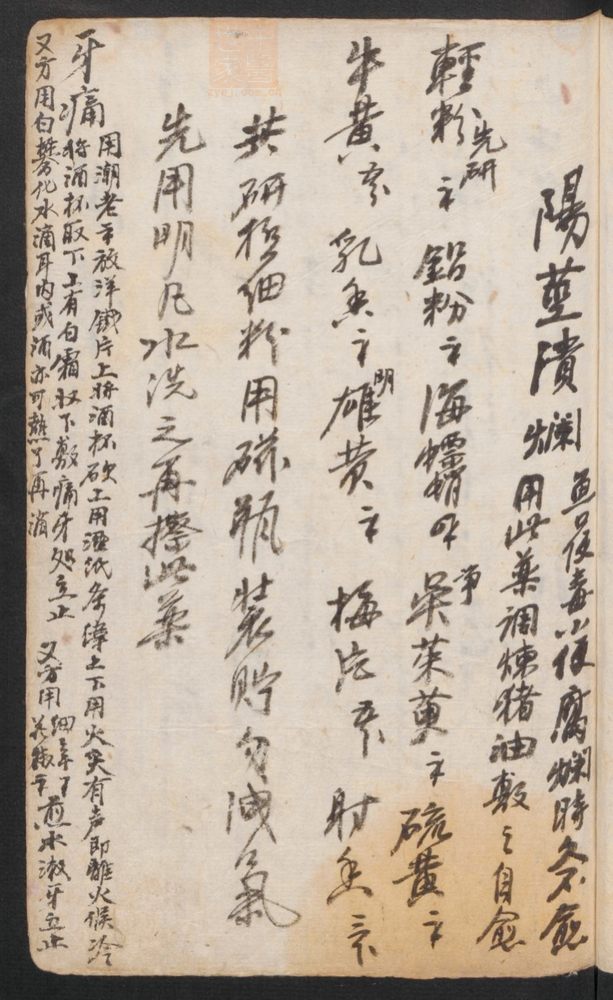 陽莖潰爛 魚口便毒小便腐爛時久不愈
用此藥調煉猪油敷之自愈
輕粉 先研 鉛粉 海螵蛸 吳茱萸 硫黃
牛黃 乳香 明雄黃 梅片 射香
共研極細粉用磁瓶裝貯勿洩氣
先用明凡水洗之再擦此藥
牙痛 用潮老 放洋鉄片上將酒杯砍上用濕紙条 上下用火 有声即離火候冷
將酒杯取下上有白霜取下敷痛牙処立止 又方用細辛
煎水漱牙立止
又方用白礬化水滴耳内或酒亦可 了再滴